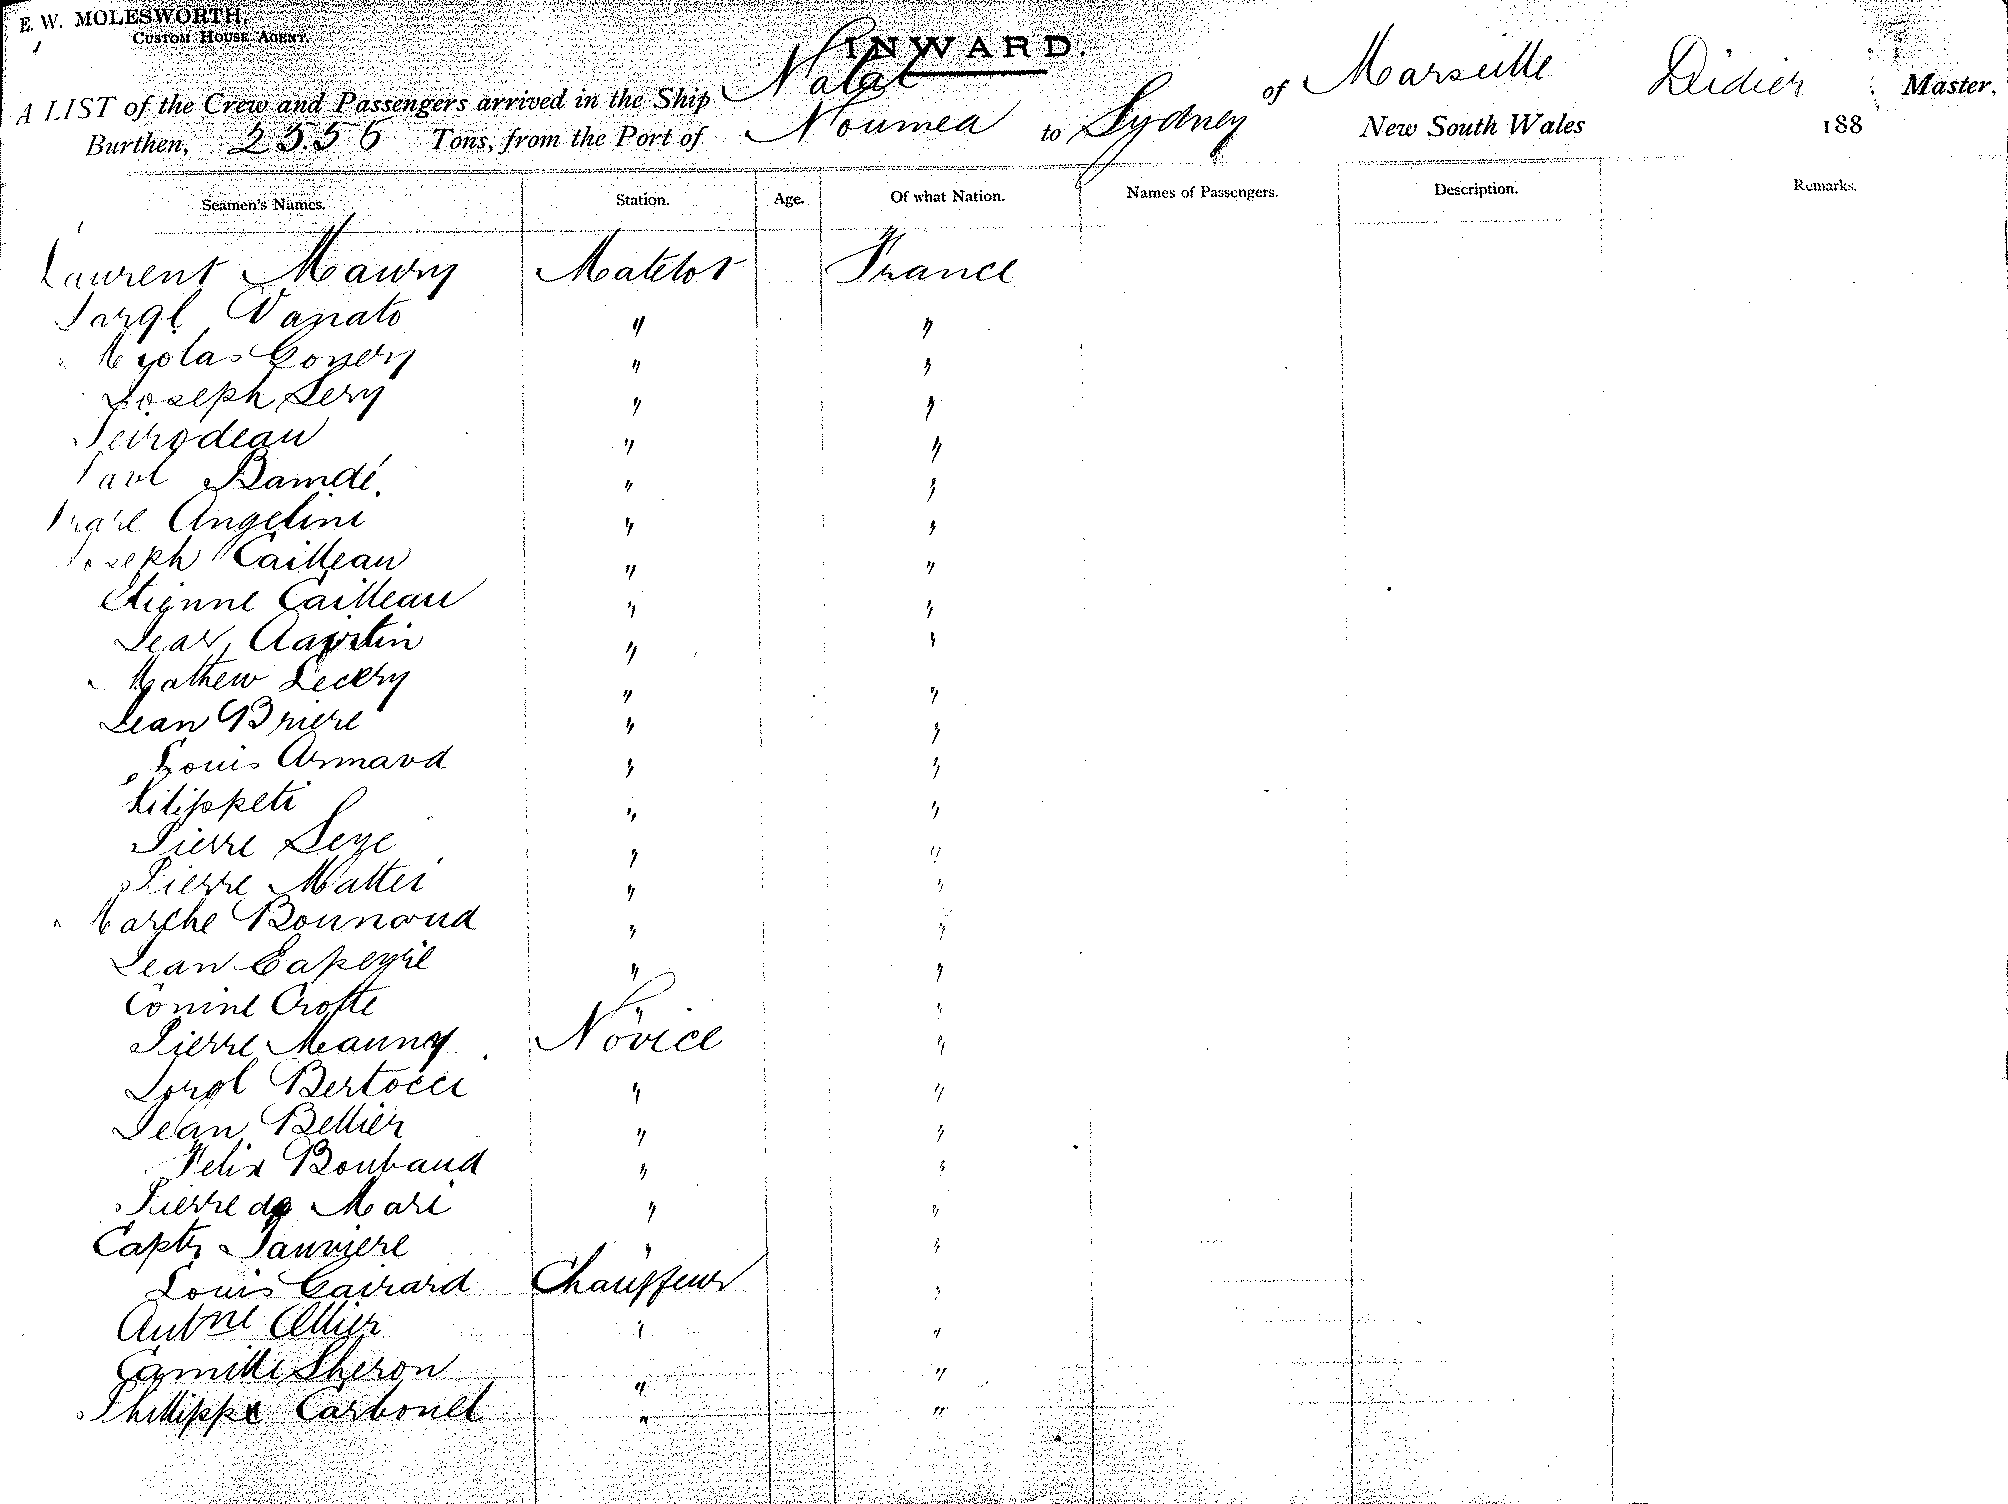 E. W. MOLESWORTH,
CUSTOM HOUSE AGENT.
INWARD.
A LIST of the Crew and Passengers arrived in the Ship Natal of Marseille Didier Master,
Burthen, 2556 Tons, from the Port of Noumea to Sydney New South Wales 188
Seamen's Names. Station. Age. Of what Nation. Names of Passengers. Description. Remarks.
Laurent Maury Matelot France
Vanato " "
Conery " "
Joseph Sery " "
Peirodeau " "
Paul Bamdé. " "
Angelini " "
Joseph Cailleau " "
Etienne Cailleau " "
Jean " "
Mathew Leccry " "
Jean Briere " "
Louis Armand " "
Filippeti " "
Pierre Seye " "
Pierre Mattei " "
Marche Bounaud " "
Jean Capeyre " "
Conine Crotte " "
Pierre Mauny Novice "
Bertocci " "
Jean Bellier " "
Felix Boubaud " "
Pierre de Mari " "
Captn Janviere " "
Louis Cairard Chauffeur "
Antne Allier " "
Camille Sheron " "
Phillippe Carbonel " "